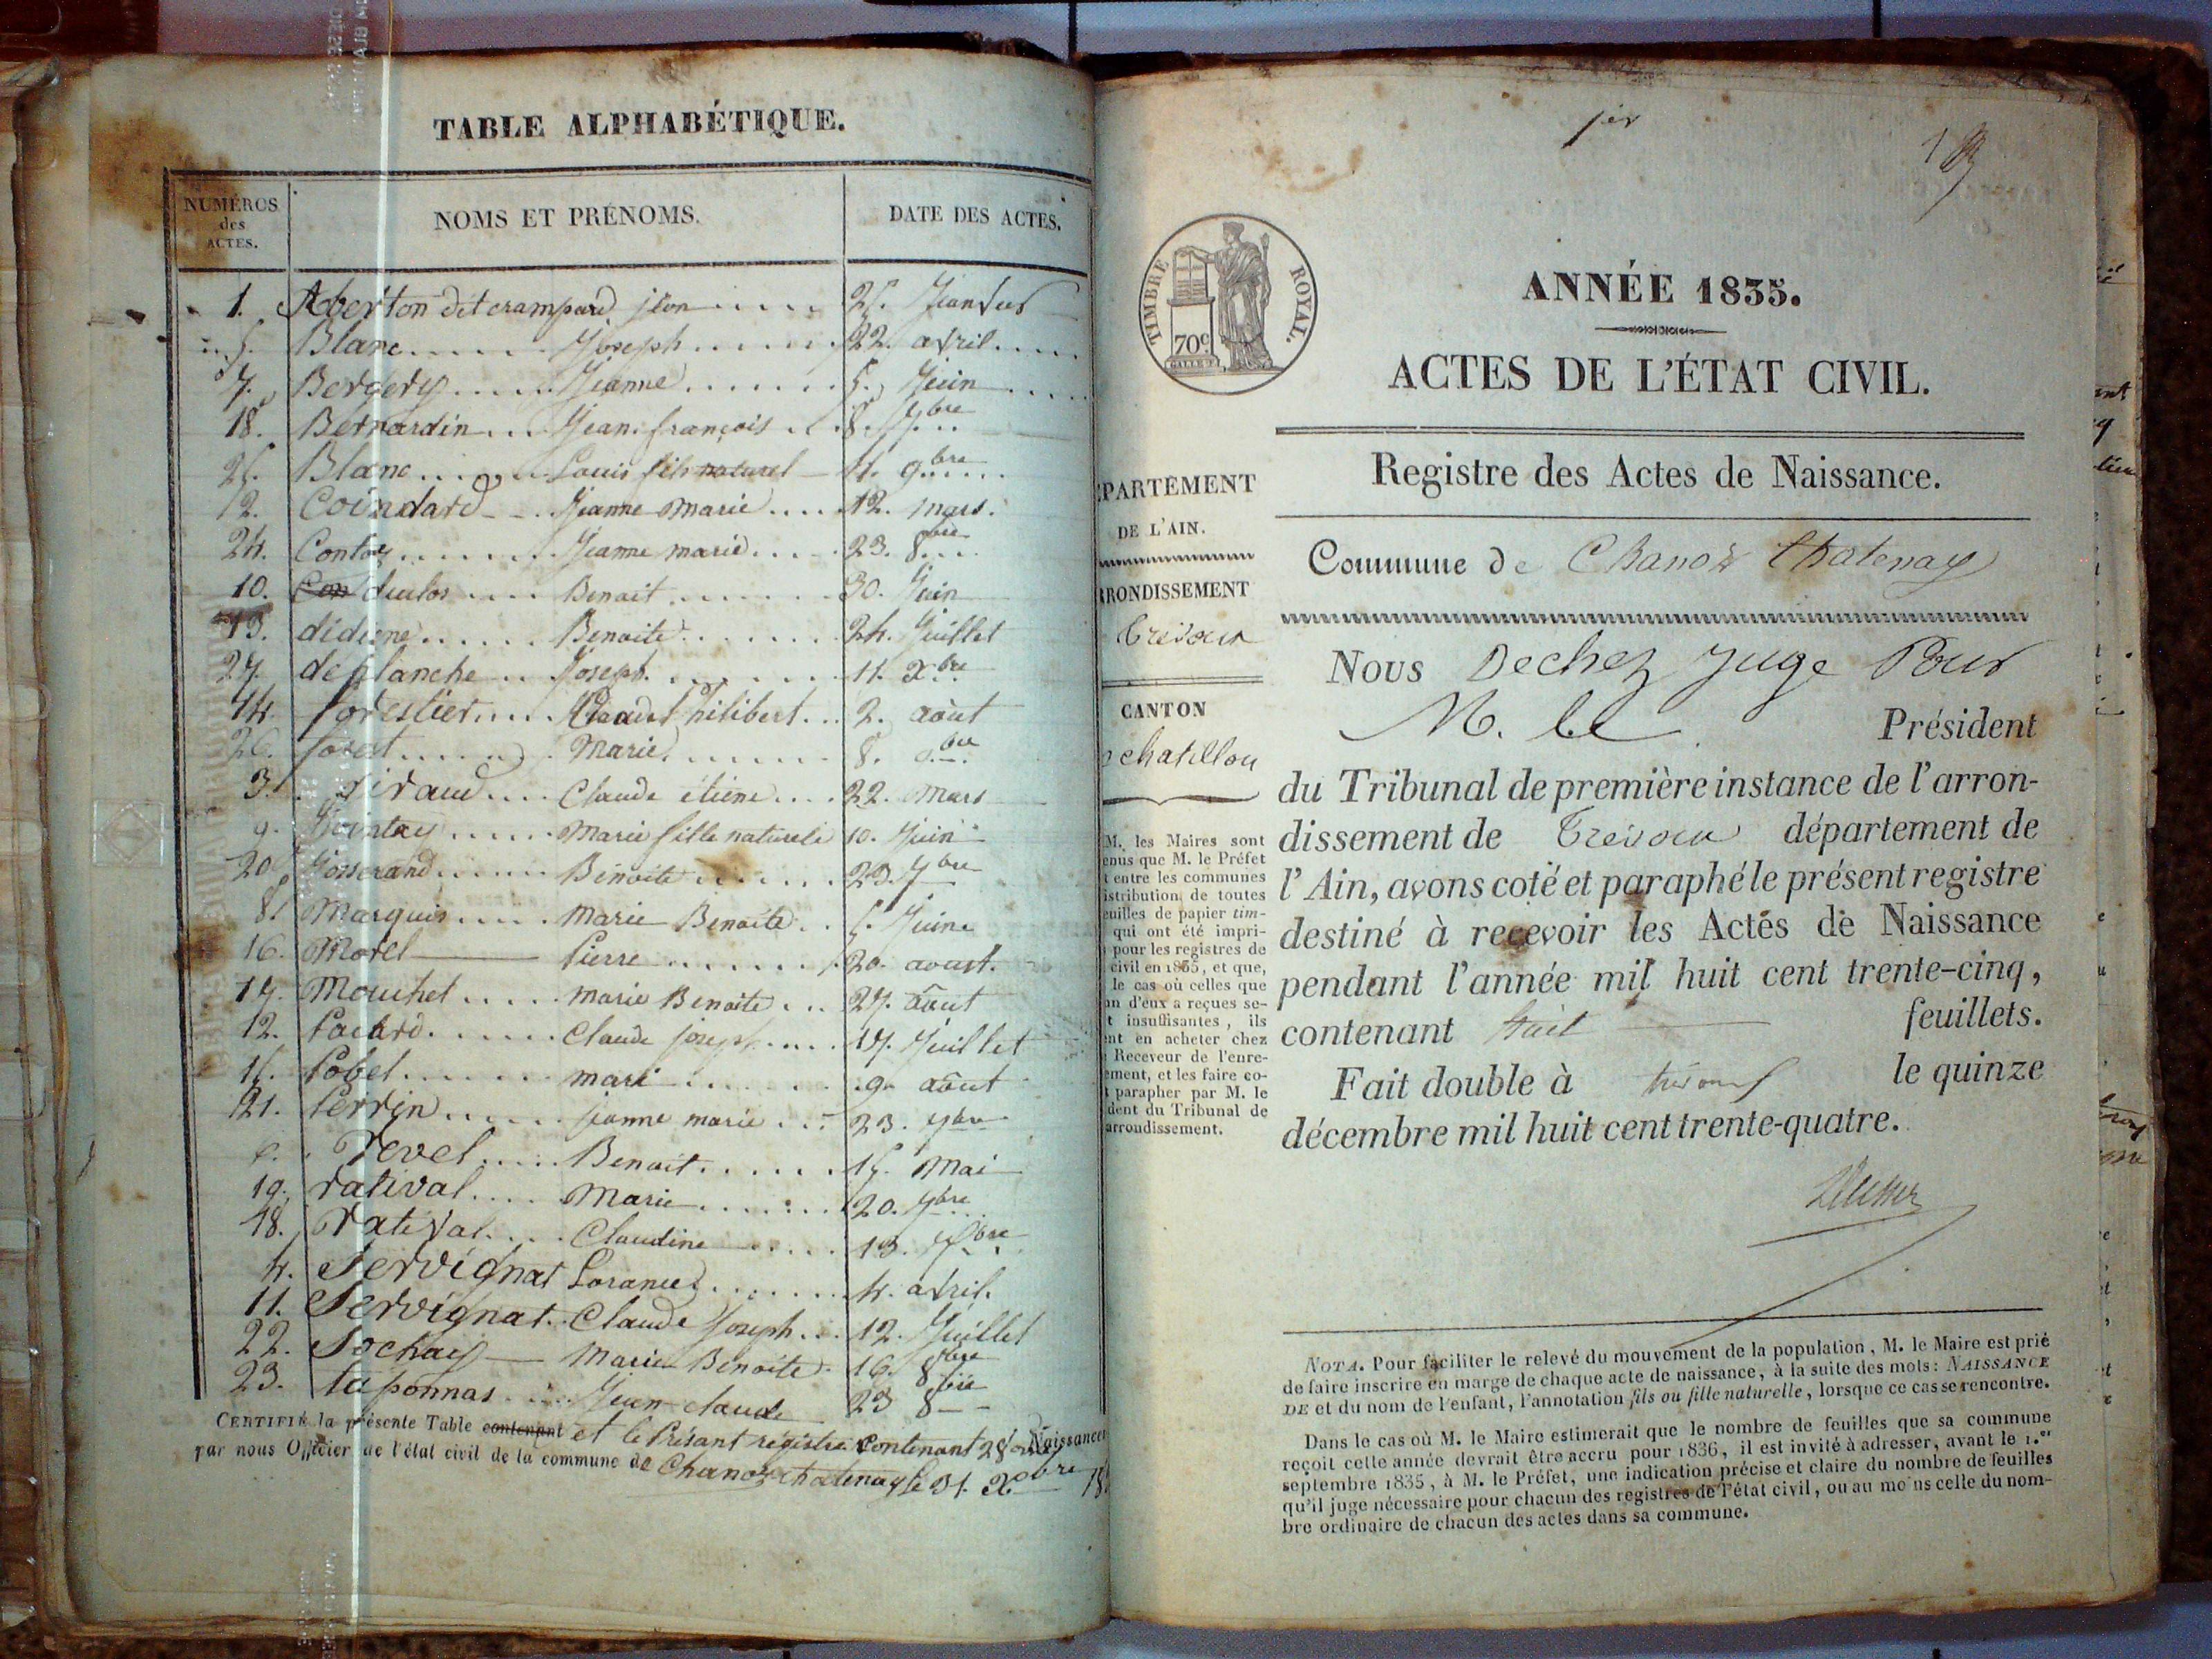 TABLE ALPHABÉTIQUE.
NUMÉROS
des
ACTES.
NOMS ET PRÉNOMS.
DATE DES ACTES.
1. Aberton dit crampard jean 25. Janvier
5. Blanc Joseph 22. avril
7. Bergery Jeanne 5. Juin
18. Bernardin Jean françois 8. 7bre
25. Blanc Louis fils naturel 11. 9bre
2. Coindard Jeanne marie 12. mars.
24. Contoz Jeanne marie 23. 8bre
10. Benoit 30. Juin
13. Benoite 24. Juillet
27. deplanche Joseph 11. Xbre
14. forestier Claude Philibert 2. août
26. Marie 8.
3. Giraud Claude étiene 22. mars
9. Marie fille naturele 10. Juin
20. Josserand Benoite 23. 7bre
8. Marquis Marie Benoite 5. Juin
16. Morel Pierre 20. aoust.
17. Mouchet marie Benoite 27. août
12. Claude joseph 17. Juillet
15. Pobel mari 9. août
21. Perrin jeanne marie 23. 7bre
6. revel Benoit 15. mai
19. ratival Marie 20. 7bre
18. rativat Claudine 13. 7bre
4. Servignat 4. avril.
11. Servignat Claude Joseph 12. Juillet
22. Sochay Marie Benoite 16. 8bre
23. taponnas Jean claude 23 8bre
CERTIFIÉ la présente Table contenant et le Présant registre contenant 28 Naissances
par nous Officier de l'état civil de la commune de Chanoz chatenay le 31. Xbre
1er
TIMBRE ROYAL.
70c
ANNÉE 1835.
ACTES DE L'ÉTAT CIVIL.
Registre des Actes de Naissance.
PARTEMENT
DE L'AIN.
RONDISSEMENT
Trévoux
CANTON
chatillon
Commune de Chanoz Chatenay
Nous Dechez Juge Pour
M. le Président
du Tribunal de première instance de l'arron-
dissement de Trévoux département de
l'Ain, avons coté et paraphé le présent registre
destiné à recevoir les Actes de Naissance
pendant l'année mil huit cent trente-cinq,
contenant huit feuillets.
Fait double à trévoux le quinze
décembre mil huit cent trente-quatre.
M. les Maires sont
enus que M. le Préfet
t entre les communes
istribution de toutes
euilles de papier tim-
qui ont été impri-
pour les registres de
civil en 1835, et que,
le cas où celles que
un d'eux a reçues se-
t insuffisantes, ils
ent en acheter chez
Receveur de l'enre-
ement, et les faire co-
t parapher par M. le
dent du Tribunal de
arrondissement.
NOTA. Pour faciliter le relevé du mouvement de la population, M. le Maire est prié
de faire inscrire en marge de chaque acte de naissance, à la suite des mots: NAISSANCE
DE et du nom de l'enfant, l'annotation fils ou fille naturelle, lorsque ce cas se rencontre.
Dans le cas où M. le Maire estimerait que le nombre de feuilles que sa commune
reçoit cette année devrait être accru pour 1836, il est invité à adresser, avant le 1.er
septembre 1835, à M. le Préfet, une indication précise et claire du nombre de feuilles
qu'il juge nécessaire pour chacun des registres de l'état civil, ou au moins celle du nom-
bre ordinaire de chacun des actes dans sa commune.